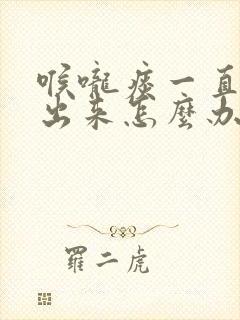 喉嚨痰一直
出來怎麼办
羅二虎